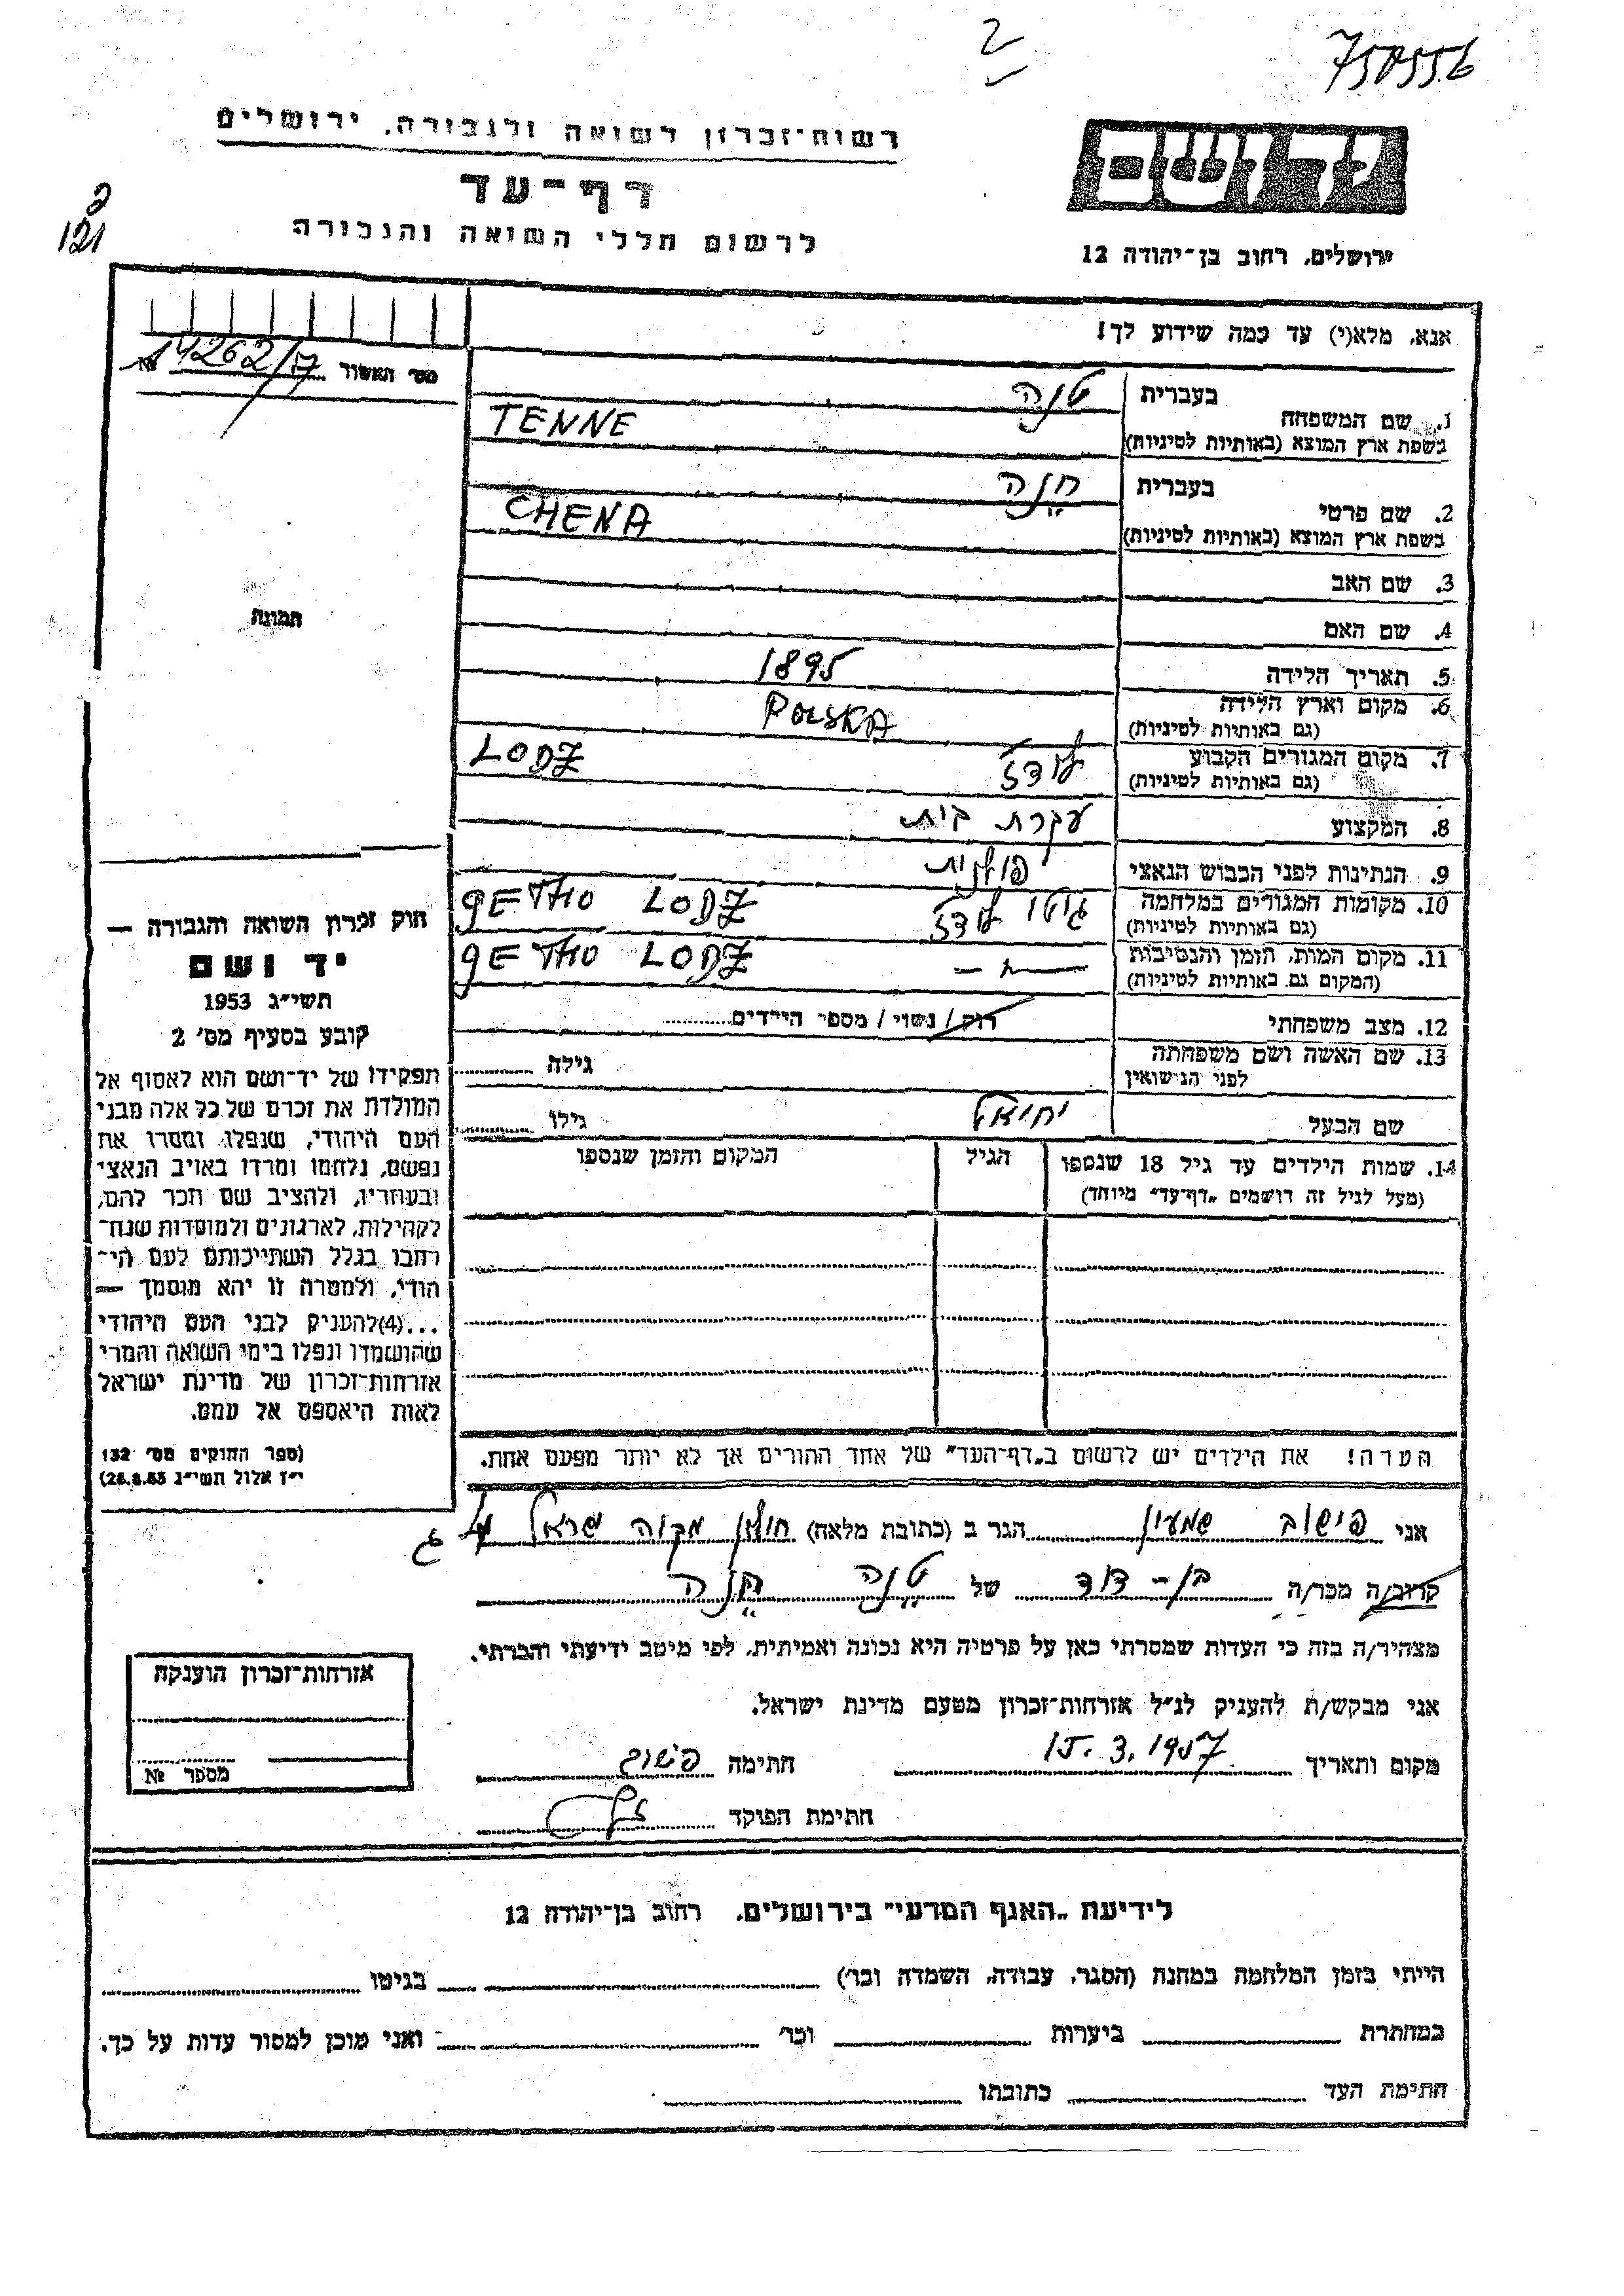 2
750556
רשות־זכרון לשואה ולגבורה, ירושלים
דף־עד
לרשום חללי השואה והגבורה
ידושם
ירושלים, רחוב בן־יהודה 12
121
אנא, מלא(י) עד כמה שידוע לך!
מס' האשור № 14262/7
1. שם המשפחה
בעברית
טנה
בשפת ארץ המוצא (באותיות לטיניות)
TENNE
2. שם פרטי
בעברית
חנה
בשפת ארץ המוצא (באותיות לטיניות)
CHENA
3. שם האב
4. שם האם
תמונה
5. תאריך הלידה
1895
6. מקום וארץ הלידה
(גם באותיות לטיניות)
POLSKA
7. מקום המגורים הקבוע
(גם באותיות לטיניות)
לודז LODZ
8. המקצוע
עקרת בית
9. הנתינות לפני הכבוש הנאצי
פולנית
10. מקומות המגורים במלחמה
(גם באותיות לטיניות)
גיטו לודז GETHO LODZ
11. מקום המות, הזמן והנסיבות
(המקום גם באותיות לטיניות)
GETHO LODZ
12. מצב משפחתי
רוק / נשוי / מספר הילדים
13. שם האשה ושם משפחתה
לפני הנישואין
גילה
שם הבעל
יחיאל
גילו
14. שמות הילדים עד גיל 18 שנספו
(מעל לגיל זה רושמים „דף־עד" מיוחד)
הגיל
המקום והזמן שנספו
חוק זכרון השואה והגבורה —
יד ושם
תשי"ג 1953
קובע בסעיף מס' 2
תפקידו של יד־ושם הוא לאסוף אל
המולדת את זכרם של כל אלה מבני
העם היהודי, שנפלו ומסרו את
נפשם, נלחמו ומרדו באויב הנאצי
ובעוזריו, ולהציב שם וזכר להם,
לקהילות, לארגונים ולמוסדות שנח־
רבו בגלל השתייכותם לעם הי־
הודי, ולמטרה זו יהא מוסמך —
...(4)להעניק לבני העם היהודי
שהושמדו ונפלו בימי השואה והמרי
אזרחות־זכרון של מדינת ישראל
לאות היאספם אל עמם.
(ספר החוקים מס' 132
י"ז אלול תשי"ג 28.8.53)
הערה! את הילדים יש לרשום ב„דף־העד" של אחד ההורים אך לא יותר מפעם אחת.
אני פישוב שמעון הגר ב (כתובת מלאה) חולון מקוה ישראל
קרוב/ה מכר/ה בן-דוד של טנה חנה
מצהיר/ה בזה כי העדות שמסרתי כאן על פרטיה היא נכונה ואמיתית, לפי מיטב ידיעתי והכרתי.
אני מבקש/ת להעניק לנ"ל אזרחות־זכרון מטעם מדינת ישראל.
מקום ותאריך 15.3.1957 חתימה פשוב
חתימת הפוקד
אזרחות־זכרון הוענקה
מספר №
לידיעת „האגף המדעי" בירושלים, רחוב בן־יהודה 12
הייתי בזמן המלחמה במחנה (הסגר, עבודה, השמדה וכו') בגיטו
במחתרת ביערות וכו' ואני מוכן למסור עדות על כך.
חתימת העד כתובתו